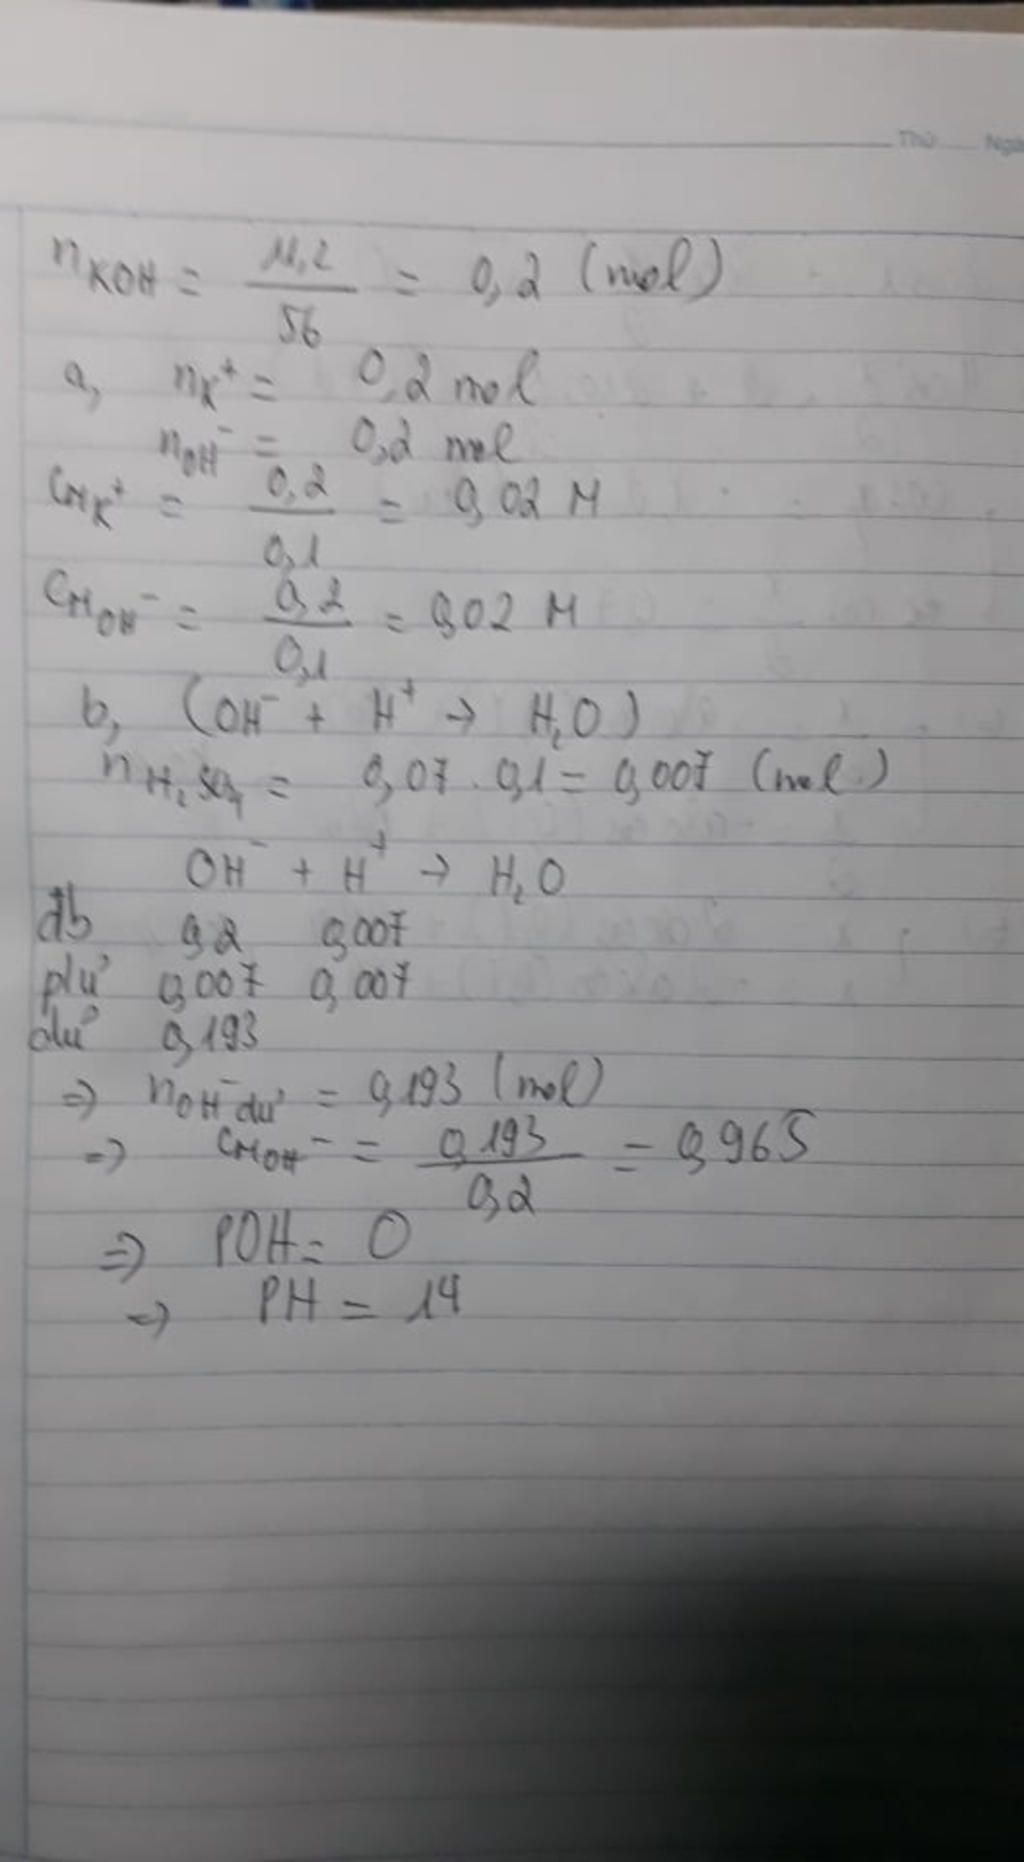 Thứ Ngà
n KOH = 11,2/56 = 0,2 (mol)
a, n K⁺ = 0,2 mol
n OH⁻ = 0,2 mol
CM K⁺ = 0,2/0,1 = 0,02 M
CM OH⁻ = 0,2/0,1 = 0,02 M
b, (OH⁻ + H⁺ → H₂O)
n H₂SO₄ = 0,07 . 0,1 = 0,007 (mol)
OH⁻ + H⁺ → H₂O
đb 0,2 0,007
pứ 0,007 0,007
dư 0,193
=> n OH⁻ dư = 0,193 (mol)
=> CM OH⁻ = 0,193/0,2 = 0,965
=> POH = 0
=> PH = 14